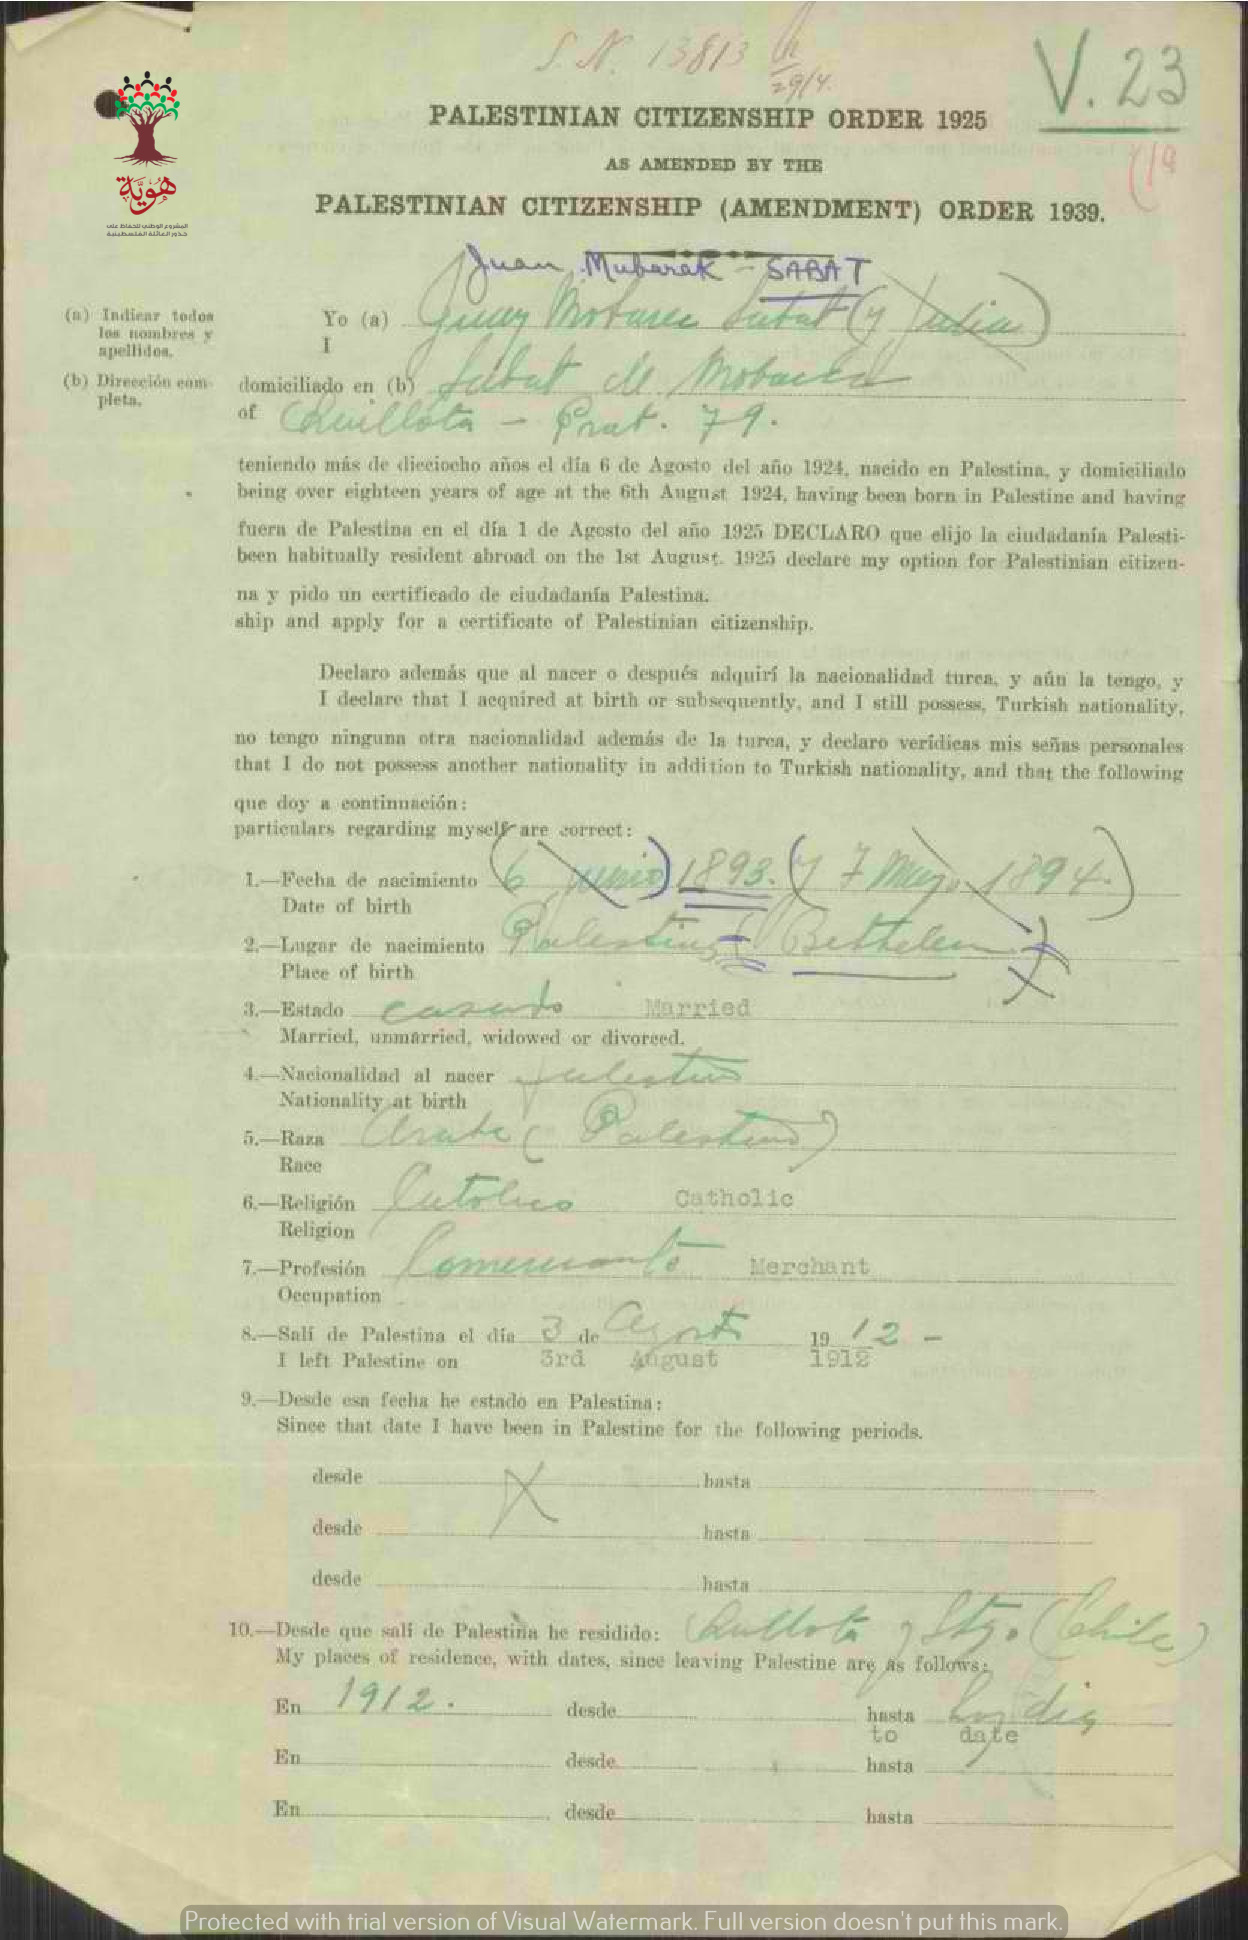 S. N. 13813
29/4.
V. 23
هوية
المشروع الوطني للحفاظ على
جذور العائلة الفلسطينية
PALESTINIAN CITIZENSHIP ORDER 1925
AS AMENDED BY THE
PALESTINIAN CITIZENSHIP (AMENDMENT) ORDER 1939.
Juan Mubarak - SABAT
(a) Indicar todos
los nombres y
apellidos.
Yo (a) Juan Mobarec Sabat (y Julia)
I
(b) Dirección com-
pleta.
domiciliado en (b) Sabat de Mobarec
of Quillota - Prat. 79.
teniendo más de dieciocho años el día 6 de Agosto del año 1924, nacido en Palestina, y domiciliado
being over eighteen years of age at the 6th August 1924, having been born in Palestine and having
fuera de Palestina en el día 1 de Agosto del año 1925 DECLARO que elijo la ciudadanía Palesti-
been habitually resident abroad on the 1st August. 1925 declare my option for Palestinian citizen-
na y pido un certificado de ciudadanía Palestina.
ship and apply for a certificate of Palestinian citizenship.
Declaro además que al nacer o después adquirí la nacionalidad turca, y aún la tengo, y
I declare that I acquired at birth or subsequently, and I still possess, Turkish nationality,
no tengo ninguna otra nacionalidad además de la turca, y declaro verídicas mis señas personales
that I do not possess another nationality in addition to Turkish nationality, and that the following
que doy a continuación:
particulars regarding myself are correct:
1.—Fecha de nacimiento (6 junio) 1893. (y 7 Mayo 1894.)
Date of birth
2.—Lugar de nacimiento Palestina (Bethelem)
Place of birth
3.—Estado casado Married
Married, unmarried, widowed or divorced.
4.—Nacionalidad al nacer palestino
Nationality at birth
5.—Raza Arabe (Palestino)
Race
6.—Religión Católico Catholic
Religion
7.—Profesión Comerciante Merchant
Occupation
8.—Salí de Palestina el día 3 de Agosto 1912 -
I left Palestine on 3rd August 1912
9.—Desde esa fecha he estado en Palestina:
Since that date I have been in Palestine for the following periods.
desde X hasta
desde hasta
desde hasta
10.—Desde que salí de Palestina he residido: Quillota y Stgo. (Chile)
My places of residence, with dates, since leaving Palestine are as follows:
En 1912. desde hasta hoy dia
to date
En desde hasta
En desde hasta
Protected with trial version of Visual Watermark. Full version doesn't put this mark.